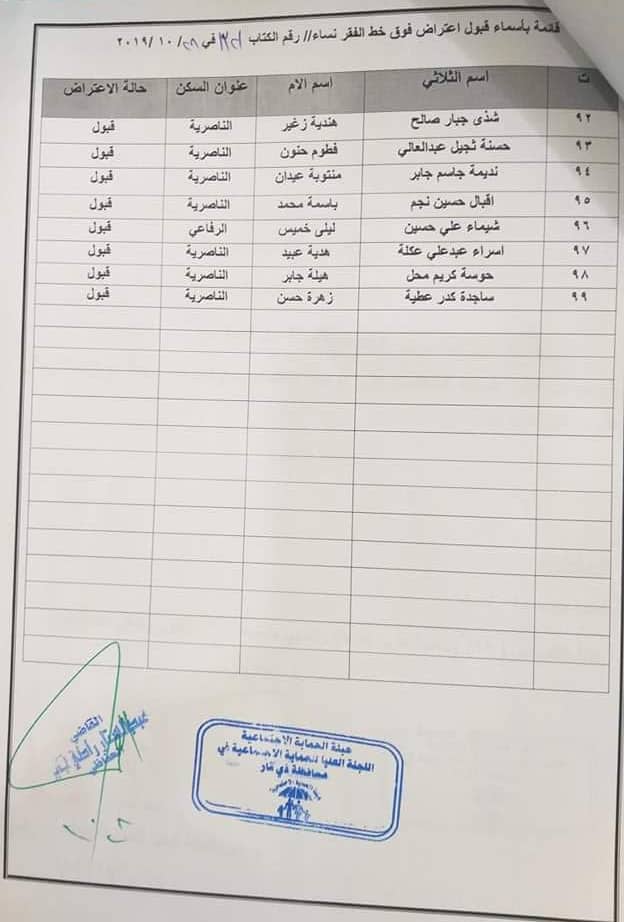 قائمة بأسماء قبول اعتراض فوق خط الفقر نساء// رقم الكتاب في ٢٨/ ١٠ /٢٠١٩
ت اسم الثلاثي اسم الام عنوان السكن حالة الاعتراض
٩٢ شذى جبار صالح هندية زغير الناصرية قبول
٩٣ حسنة ثجيل عبدالعالي فطوم حنون الناصرية قبول
٩٤ نديمة جاسم جابر منتوبة عيدان الناصرية قبول
٩٥ اقبال حسين نجم باسمة محمد الناصرية قبول
٩٦ شيماء علي حسين ليلى خميس الرفاعي قبول
٩٧ اسراء عبدعلي عكلة هدية عبيد الناصرية قبول
٩٨ حوسة كريم محل هيلة جابر الناصرية قبول
٩٩ ساجدة كدر عطية زهرة حسن الناصرية قبول
القاضي
هيئة الحماية الاجتماعية
اللجنة العليا للحماية الاجتماعية في
محافظة ذي قار